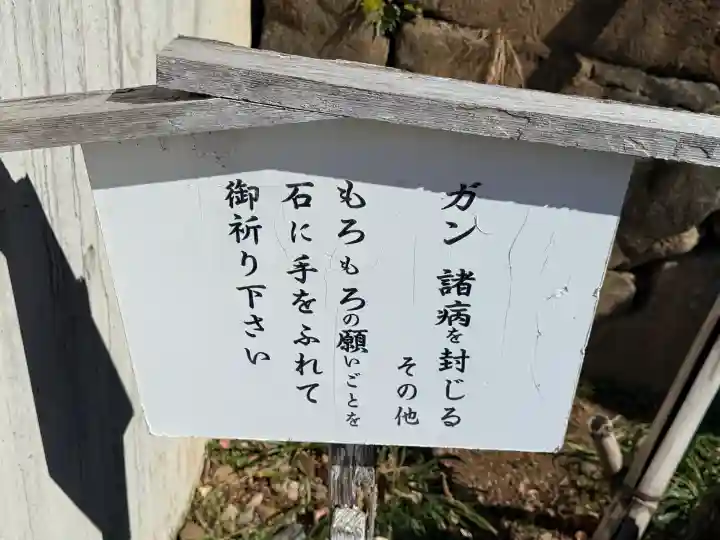 ガン 諸病を封じる
その他
もろもろの願いごとを
石に手をふれて
御祈り下さい